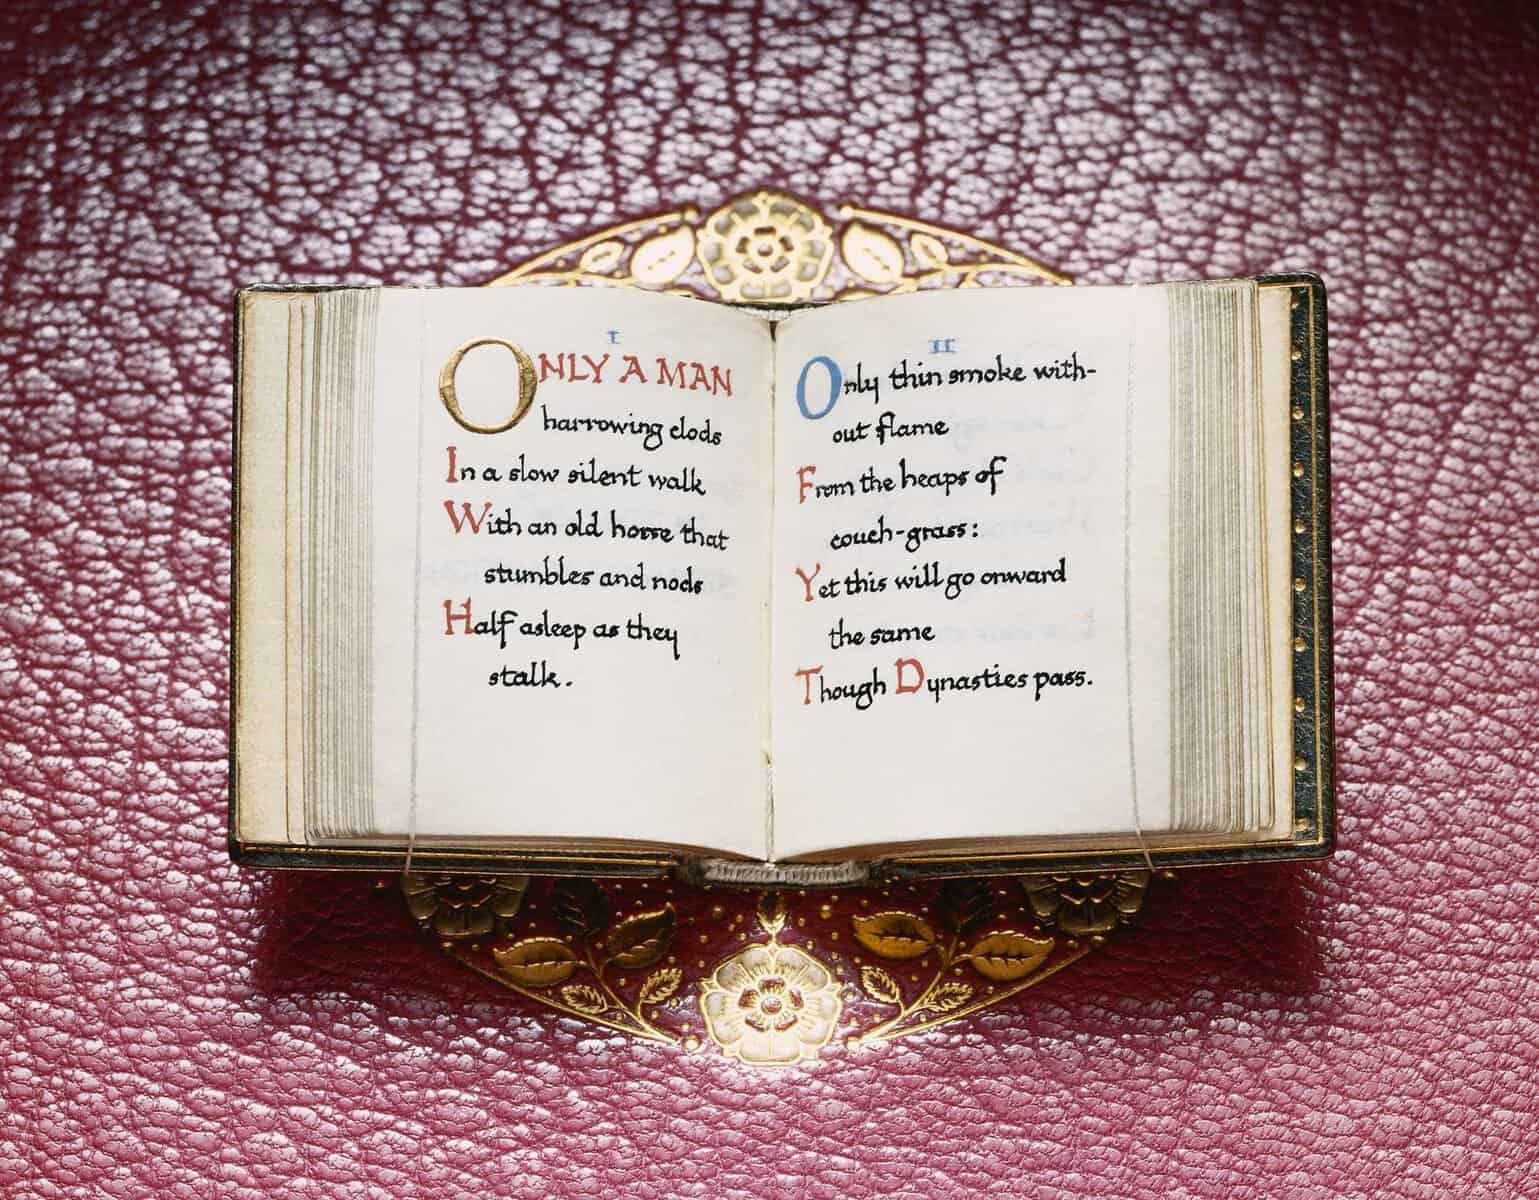 I
ONLY A MAN
harrowing clods
In a slow silent walk
With an old horse that
stumbles and nods
Half asleep as they
stalk.
II
Only thin smoke with-
out flame
From the heaps of
couch-grass:
Yet this will go onward
the same
Though Dynasties pass.